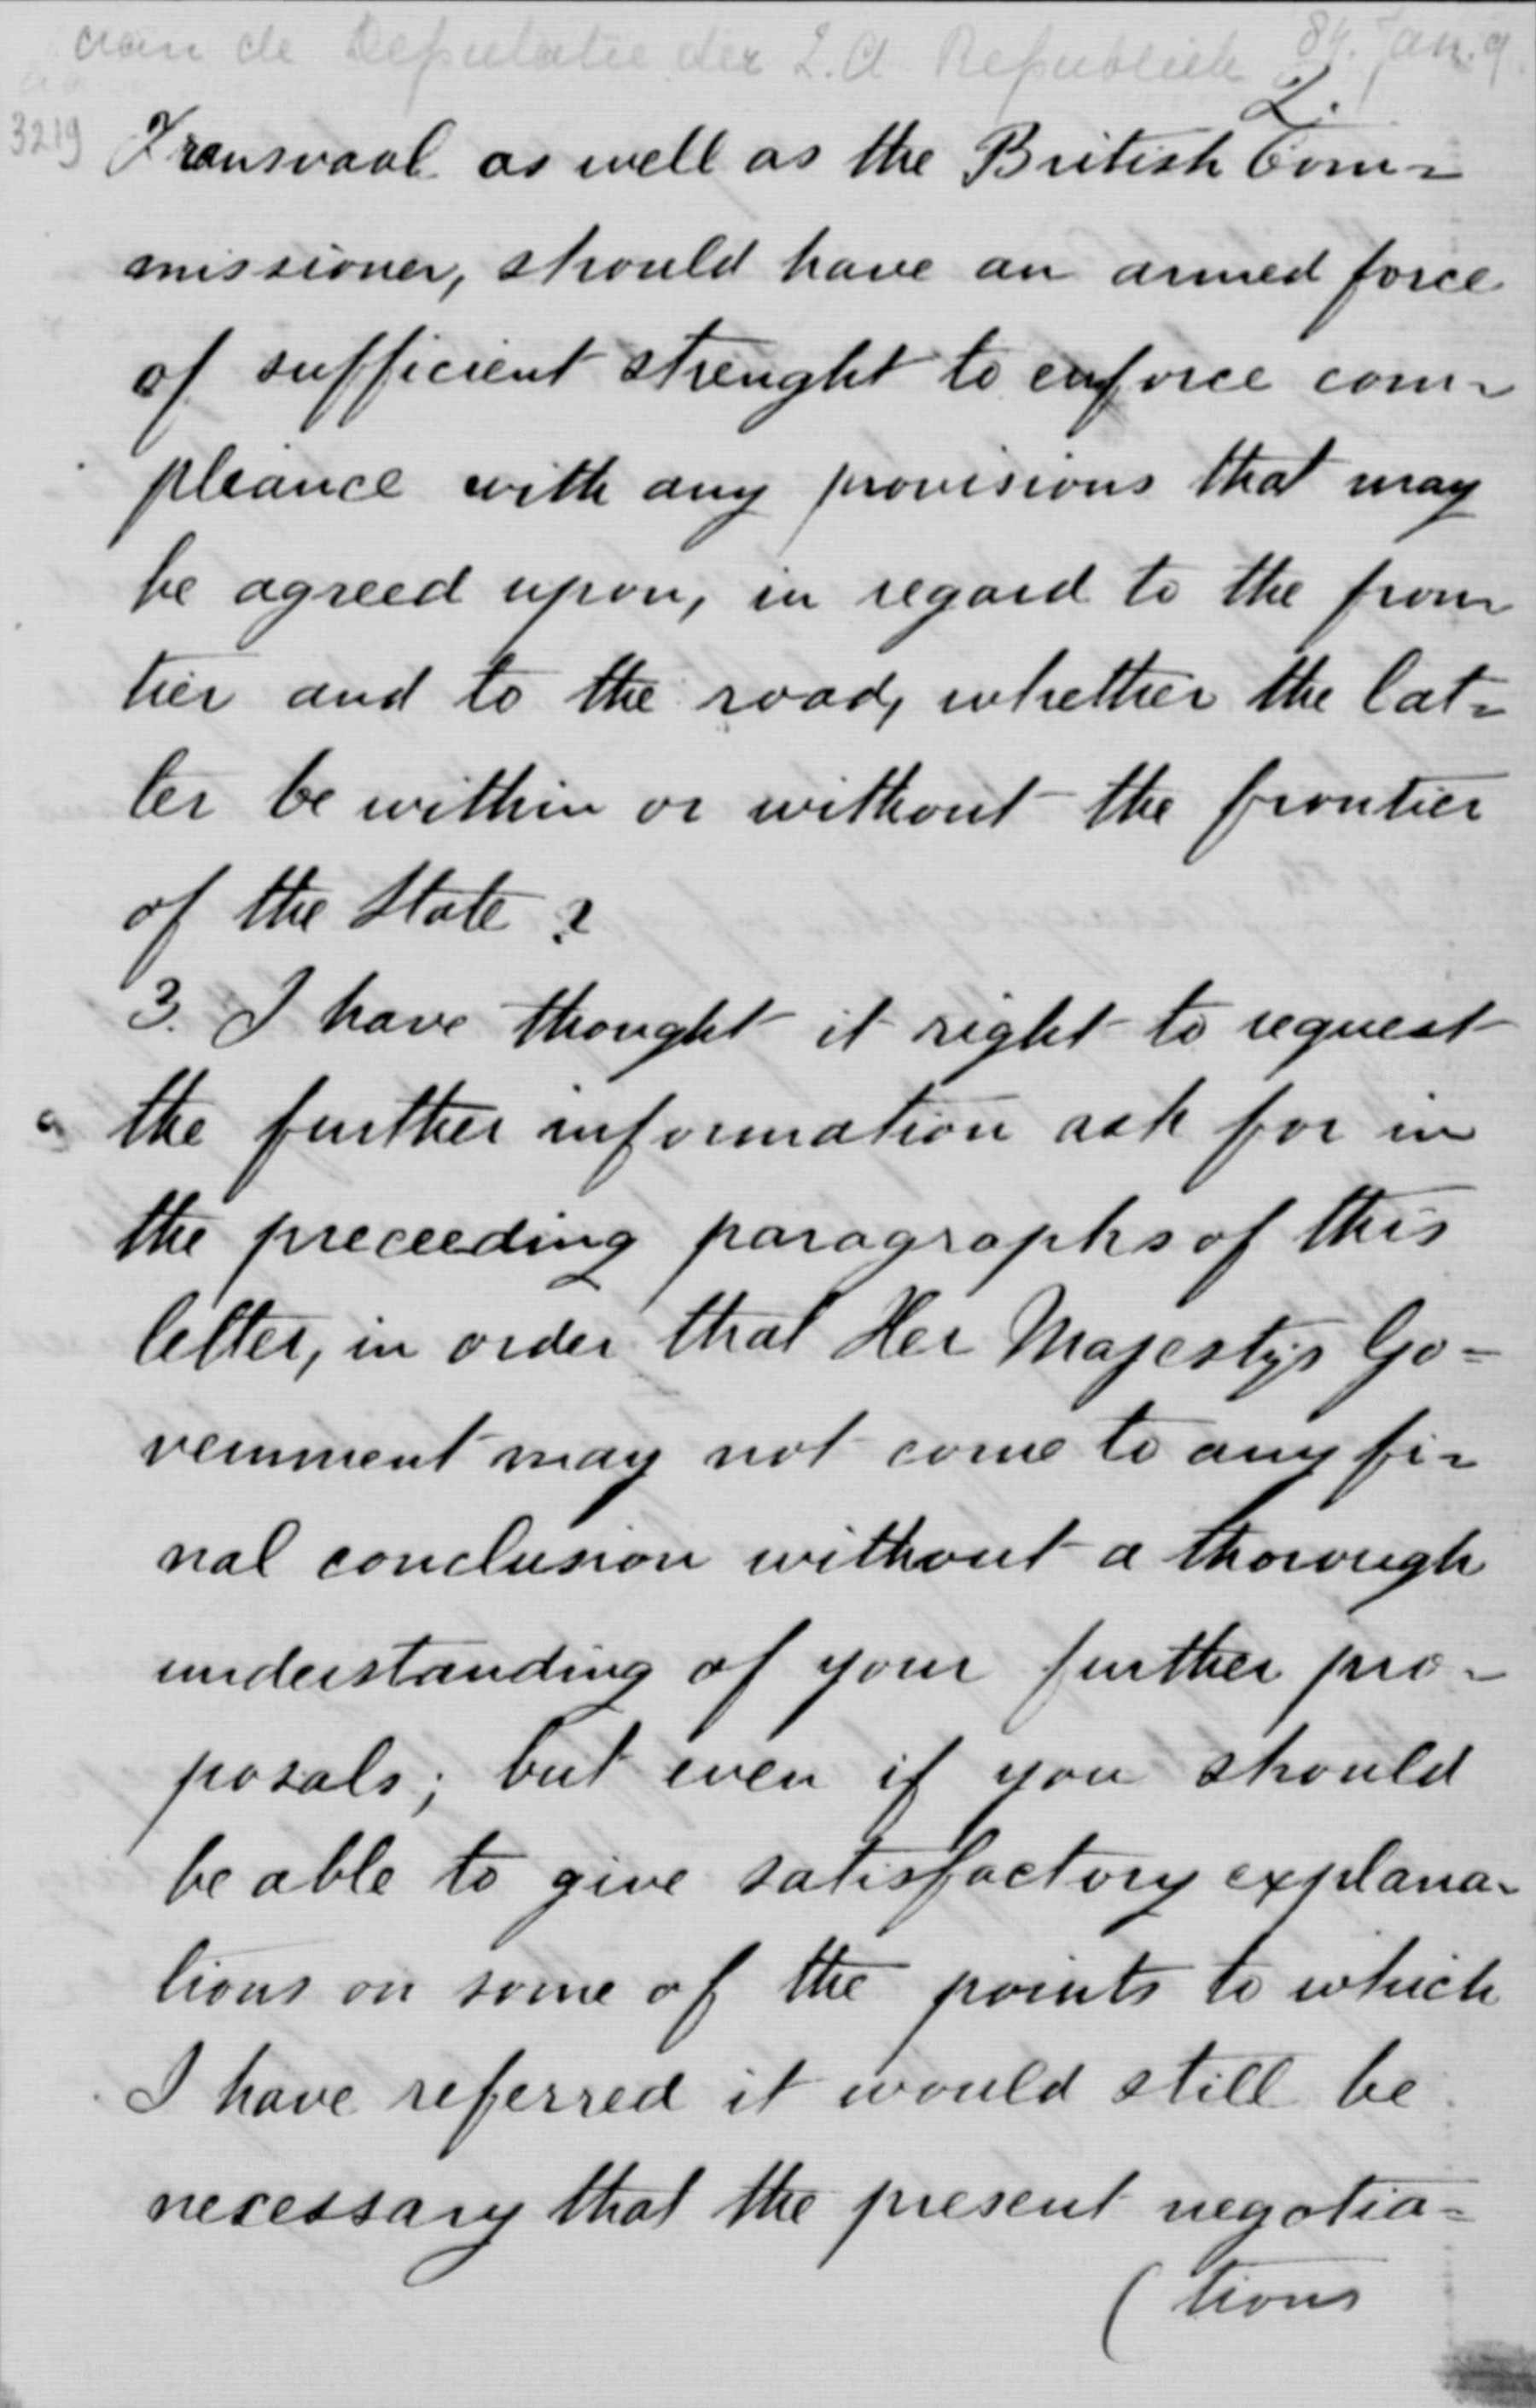 aan de Deputatie der Z.A. Republiek 84. Jan. 9
2.
3219
Transvaal as well as the British Com=
missioner, should have an armed force
of sufficient strenght to enforce com-
pliance with any provisions that may
be agreed upon, in regard to the fron
tier and to the road, whether the lat=
ter be within or without the frontier
of the State ?
3. I have thought it right to request
the further information ask for in
the preceeding paragraphs of this
letter, in order that Her Majesty's Go=
vernment may not come to any fi-
nal conclusion without a thorough
understanding of your further pro-
posals; but even if you should
be able to give satisfactory explana-
tions on some of the points to which
I have referred it would still be
necessary that the present negotia=
( tions